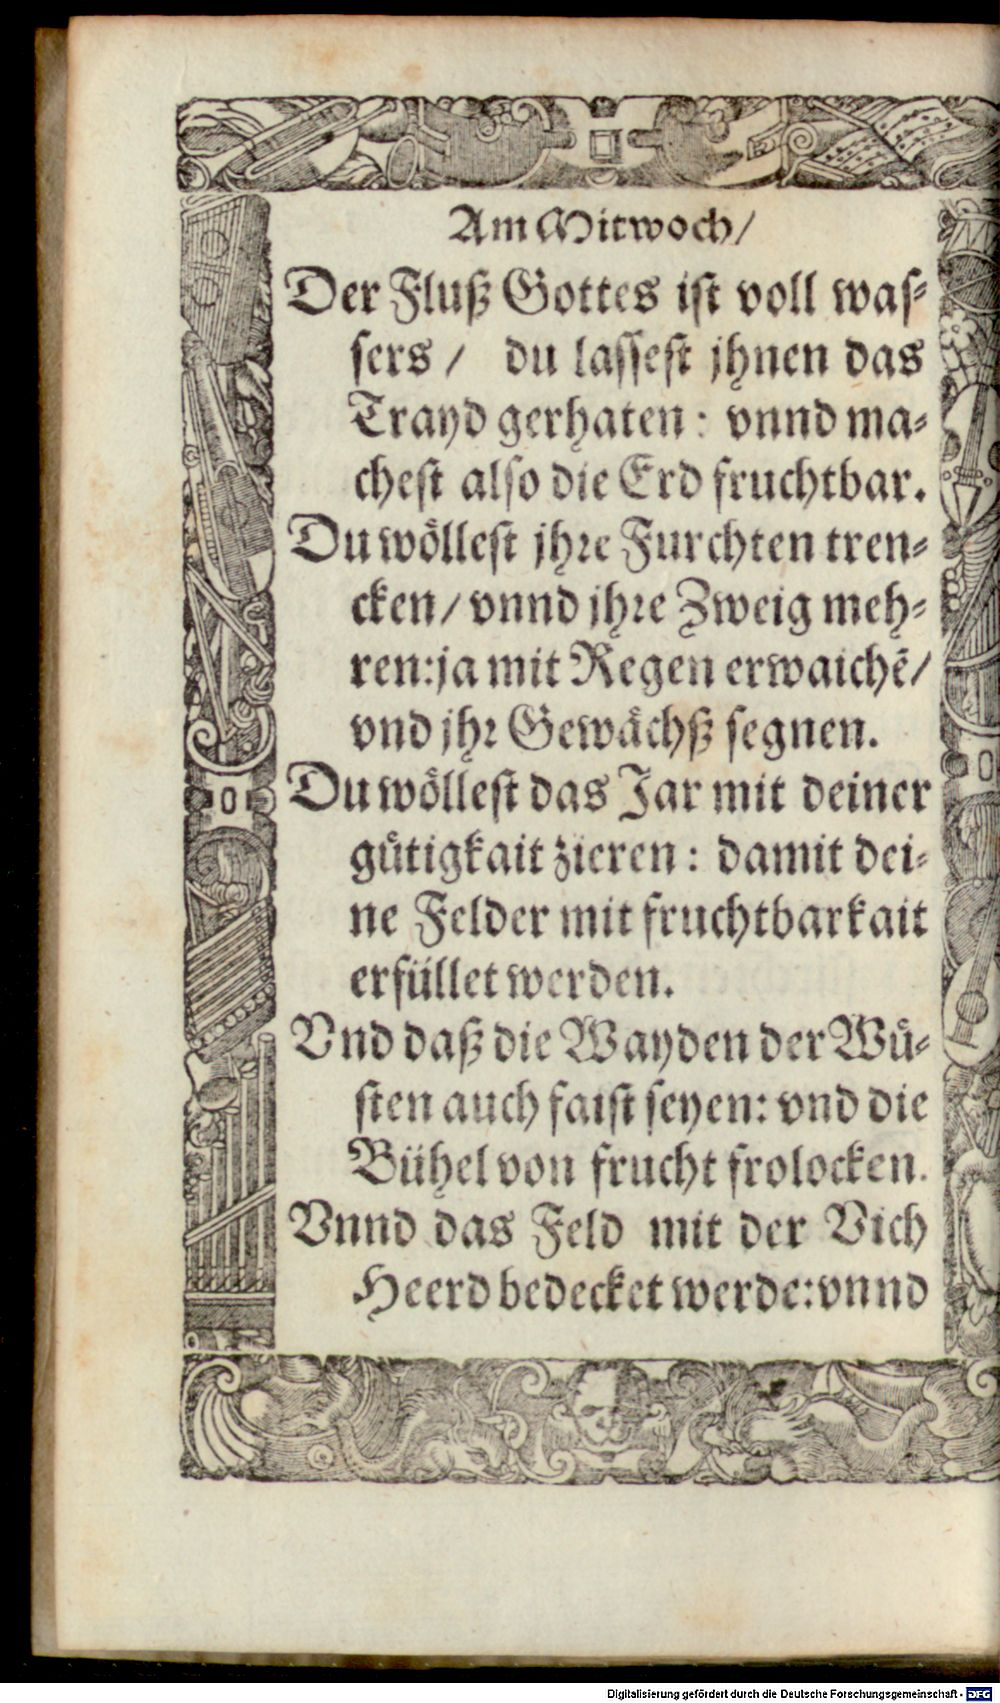 Am Mitwoch/
Der Fluß Gottes ist voll was⸗
sers / du lassest jhnen das
Trayd gerhaten: vnnd ma⸗
chest also die Erd fruchtbar.
Du wöllest jhre Furchten tren⸗
cken/ vnnd jhre Zweig meh⸗
ren: ja mit Regen erwaichẽ/
vnd jhr Gewächß segnen.
Du wöllest das Jar mit deiner
gütigkait zieren: damit dei⸗
ne Felder mit fruchtbarkait
erfüllet werden.
Vnd daß die Wayden der Wü⸗
sten auch faist seyen: vnd die
Bühel von frucht frolocken.
Vnnd das Feld mit der Vich
Heerd bedecket werde: vnnd
Digitalisierung gefördert durch die Deutsche Forschungsgemeinschaft - DFG